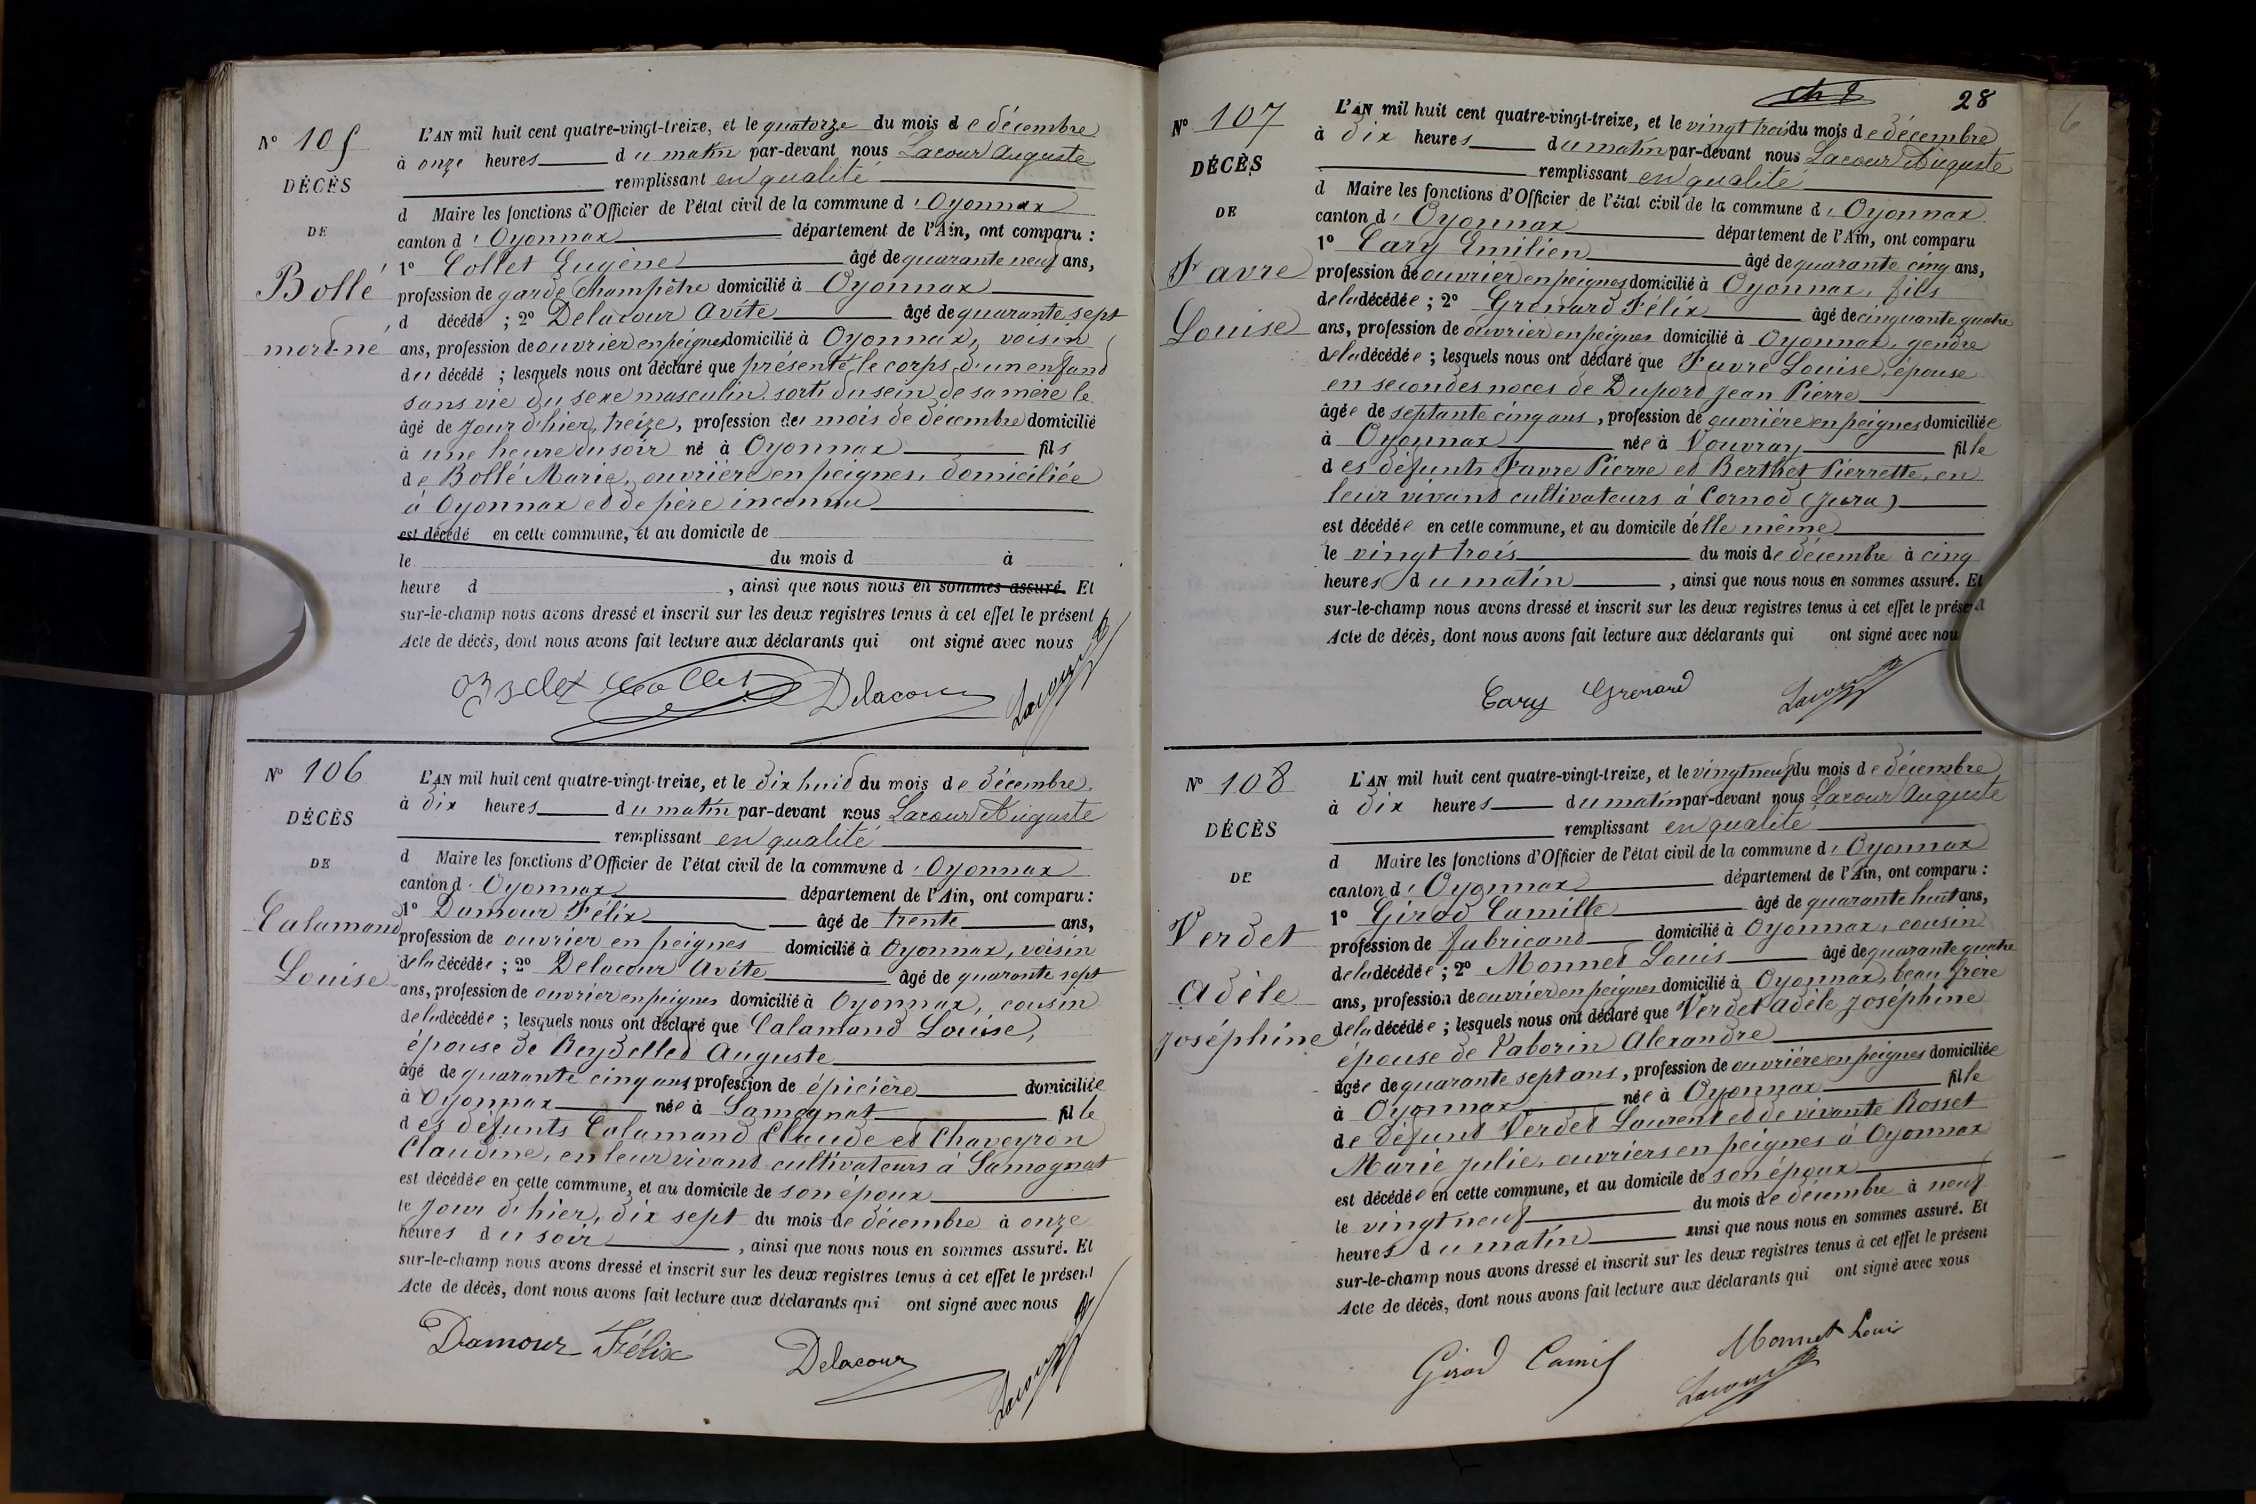 Nº 105
DÉCÈS
DE
Bollé
mort-né
L'AN mil huit cent quatre-vingt-treize, et le quatorze du mois de décembre
à onze heures du matin par-devant nous Lacour Auguste
remplissant en qualité
d Maire les fonctions d'Officier de l'état civil de la commune d'Oyonnax
canton d'Oyonnax département de l'Ain, ont comparu :
1º Collet Eugène âgé de quarante neuf ans,
profession de garde champêtre domicilié à Oyonnax
d décédé ; 2º Delacour Avite âgé de quarante sept
ans, profession de ouvrier en peignes domicilié à Oyonnax, voisin
du décédé ; lesquels nous ont déclaré que présenté le corps d'un enfant
sans vie du sexe masculin sorti du sein de sa mère le
âgé de jour d'hier, treize, profession du mois de décembre domicilié
à une heure du soir né à Oyonnax fils
de Bollé Marie, ouvrière en peignes, domiciliée
à Oyonnax et de père inconnu
est décédé en cette commune, et au domicile de
le du mois d à
heure d , ainsi que nous nous en sommes assuré. Et
sur-le-champ nous avons dressé et inscrit sur les deux registres tenus à cet effet le présent
Acte de décès, dont nous avons fait lecture aux déclarants qui ont signé avec nous
Collet Delacour Lacour
Nº 106
DÉCÈS
DE
Calamand
Louise
L'AN mil huit cent quatre-vingt-treize, et le dix huit du mois de décembre
à dix heures du matin par-devant nous Lacour Auguste
remplissant en qualité
d Maire les fonctions d'Officier de l'état civil de la commune d'Oyonnax
canton d'Oyonnax département de l'Ain, ont comparu :
1º Damour Félix âgé de trente ans,
profession de ouvrier en peignes domicilié à Oyonnax, voisin
de la décédée ; 2º Delacour Avite âgé de quarante sept
ans, profession de ouvrier en peignes domicilié à Oyonnax, cousin
de la décédée ; lesquels nous ont déclaré que Calamand Louise,
épouse de Reydellet Auguste
âgé de quarante cinq ans profession de épicière domiciliée
à Oyonnax née à Samognat fille
des défunts Calamand Claude et Chaveyron
Claudine, en leur vivant cultivateurs à Samognat
est décédée en cette commune, et au domicile de son époux
le jour d'hier, dix sept du mois de décembre à onze
heures du soir , ainsi que nous nous en sommes assuré. Et
sur-le-champ nous avons dressé et inscrit sur les deux registres tenus à cet effet le présent
Acte de décès, dont nous avons fait lecture aux déclarants qui ont signé avec nous
Damour Félix Delacour Lacour
28
6
Nº 107
DÉCÈS
DE
Favre
Louise
L'AN mil huit cent quatre-vingt-treize, et le vingt trois du mois de décembre
à dix heures du matin par-devant nous Lacour Auguste
remplissant en qualité
d Maire les fonctions d'Officier de l'état civil de la commune d'Oyonnax
canton d'Oyonnax département de l'Ain, ont comparu
1º Cary Emilien âgé de quarante cinq ans,
profession de ouvrier en peignes domicilié à Oyonnax, fils
de la décédée ; 2º Grenard Félix âgé de cinquante quatre
ans, profession de ouvrier en peignes domicilié à Oyonnax, gendre
de la décédée ; lesquels nous ont déclaré que Favre Louise, épouse
en secondes noces de Dupord Jean Pierre
âgée de septante cinq ans, profession de ouvrière en peignes domiciliée
à Oyonnax née à Vouvray fille
des défunts Favre Pierre et Berthet Pierrette, en
leur vivant cultivateurs à Cornod (Jura)
est décédée en cette commune, et au domicile d'elle même
le vingt trois du mois de décembre à cinq
heures du matin , ainsi que nous nous en sommes assuré. Et
sur-le-champ nous avons dressé et inscrit sur les deux registres tenus à cet effet le présent
Acte de décès, dont nous avons fait lecture aux déclarants qui ont signé avec nou
Cary Grenard Lacour
Nº 108
DÉCÈS
DE
Verdet
Adèle
Joséphine
L'AN mil huit cent quatre-vingt-treize, et le vingt neuf du mois de décembre
à dix heures du matin par-devant nous Lacour Auguste
remplissant en qualité
d Maire les fonctions d'Officier de l'état civil de la commune d'Oyonnax
canton d'Oyonnax département de l'Ain, ont comparu :
1º Girod Camille âgé de quarante huit ans,
profession de fabricant domicilié à Oyonnax, cousin
de la décédée ; 2º Monnet Louis âgé de quarante quatre
ans, profession de ouvrier en peignes domicilié à Oyonnax, beau frère
de la décédée ; lesquels nous ont déclaré que Verdet Adèle Joséphine
épouse de Taborin Alexandre
âgée de quarante sept ans, profession de ouvrière en peignes domiciliée
à Oyonnax née à Oyonnax fille
de défunt Verdet Laurent et de vivante Rosset
Marie Julie, ouvriers en peignes à Oyonnax
est décédée en cette commune, et au domicile de son époux
le vingt neuf du mois de décembre à neuf
heures du matin ainsi que nous nous en sommes assuré. Et
sur-le-champ nous avons dressé et inscrit sur les deux registres tenus à cet effet le présent
Acte de décès, dont nous avons fait lecture aux déclarants qui ont signé avec nous
Girod Camil Monnet Louis
Lacour